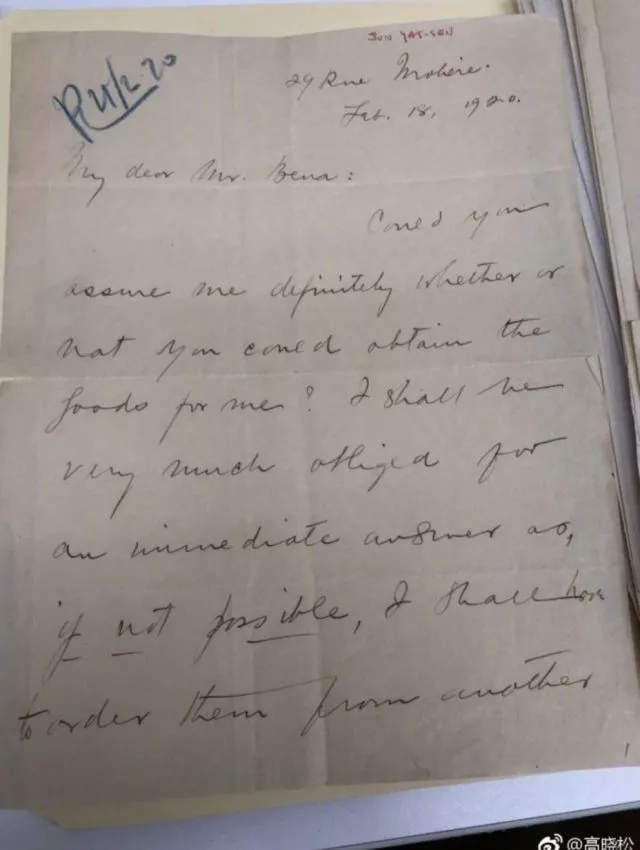 SUN YAT-SEN
R 21/2.20
29 Rue Molière.
Feb. 18, 1920.
My dear Mr. Bena:
Could you
assure me definitely whether or
not you could obtain the
goods for me? I shall be
very much obliged for
an immediate answer as,
if not possible, I shall have
to order them from another
1
@高晓松